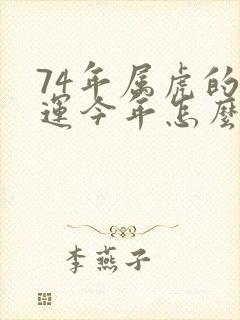 74年属虎的
運今年怎麽
李燕子